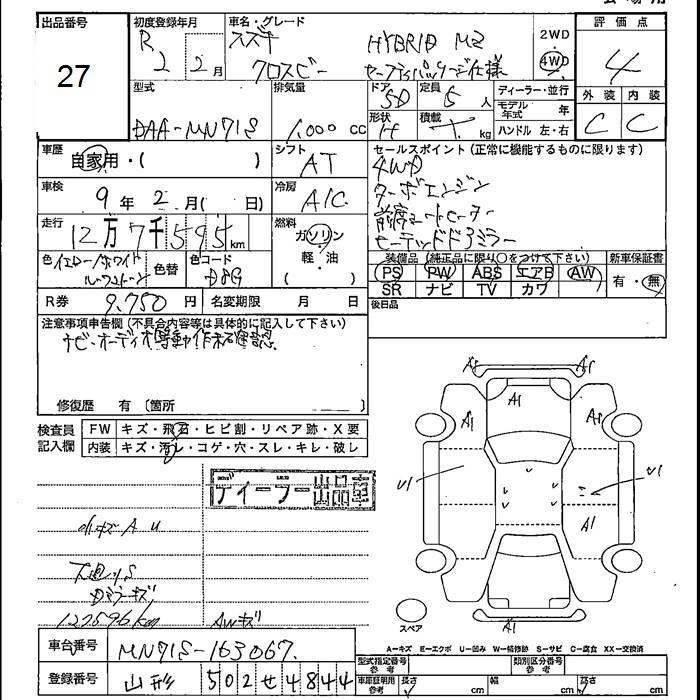 出品番号
27
初度登録年月
R 2 2月
車名・グレード
スズキ HYBRID MZ
クロスビー セーフティパッケージ仕様
2WD
4WD
評価点
4
外装 内装
C C
型式
DAA-MN71S
排気量
1,000 cc
ドア
5D
定員
5人
形状
H
積載
kg
ディーラー・並行
モデル年式 年
ハンドル 左・右
車歴
自家用・( )
シフト
AT
セールスポイント(正常に機能するものに限ります)
4WD
ターボエンジン
前席シートヒーター
ヒーテッドドアミラー
車検
9年 2月( 日)
冷房
A/C
走行
12万7千595km
燃料
ガソリン
軽・油
( )
色 イエロー/ホワイト
色替
色コード
装備品(純正品に限り○をつけて下さい)
PS PW ABS エアB AW
SR ナビ TV カワ
新車保証書
有・無
R券 9,750円
名変期限 月 日
後日品
注意事項申告欄(不具合内容等は具体的に記入して下さい)
ナビ・オーディオ等動作未確認
修復歴 有 〔箇所 〕
検査員記入欄
FW キズ・飛石・ヒビ割・リペア跡・X要
内装 キズ・汚レ・コゲ・穴・スレ・キレ・破レ
ディーラー出品車
A1 A1
A1
A1
U1 U1
A1
A1
小キズ A U
下廻りS
Dミラーキズ
127596km AWキズ
スペア
A-キズ E-エクボ U-凹み W-補修跡 S-サビ C-腐食 XX-交換済
車台番号
MN71S-163067.
登録番号
山形 502 せ 4844
型式指定番号
参考
類別区分番号
参考
車庫証明用
参考
長さ cm
幅 cm
高さ cm